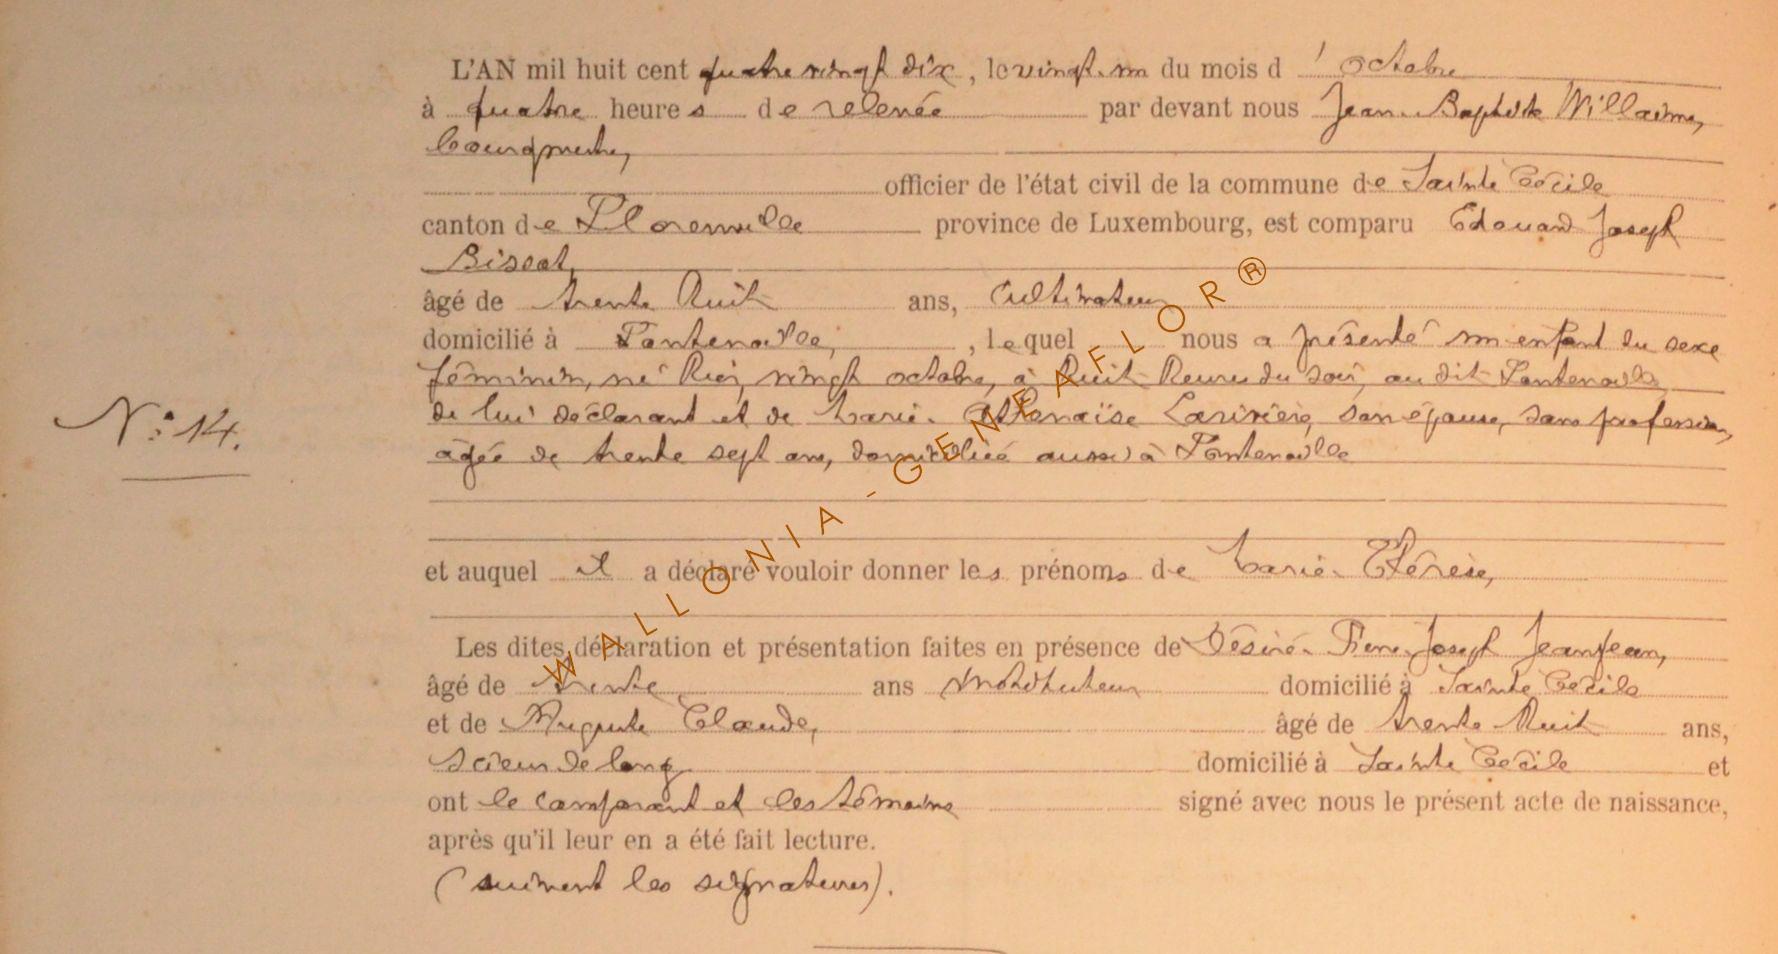 L'AN mil huit cent quatre vingt dix, le vingt-un du mois d'octobre
à quatre heures de relevée par devant nous Jean-Baptiste Willaime,
bourgmestre,
officier de l'état civil de la commune de Sainte Cécile
canton de Florenville province de Luxembourg, est comparu Edouard Joseph
Bissot,
âgé de trente huit ans, cultivateur
domicilié à Fontenoille, , lequel nous a présenté un enfant du sexe
féminin, né hier, vingt octobre, à huit heures du soir, au dit Fontenoille,
N° 14.
de lui déclarant et de Marie-Athenaïse Larivière, son épouse, sans profession,
âgée de trente sept ans, domiciliée aussi à Fontenoille
et auquel il a déclaré vouloir donner les prénoms de Marie-Thérèse,
Les dites déclaration et présentation faites en présence de Désiré-Pierre-Joseph Jeanjean,
âgé de trente ans instituteur domicilié à Sainte Cécile
et de Auguste Claude, âgé de trente-huit ans,
scieur de long domicilié à Sainte Cécile et
ont le comparant et les témoins signé avec nous le présent acte de naissance,
après qu'il leur en a été fait lecture.
(suivent les signatures).
WALLONIA-GENEAFLOR®